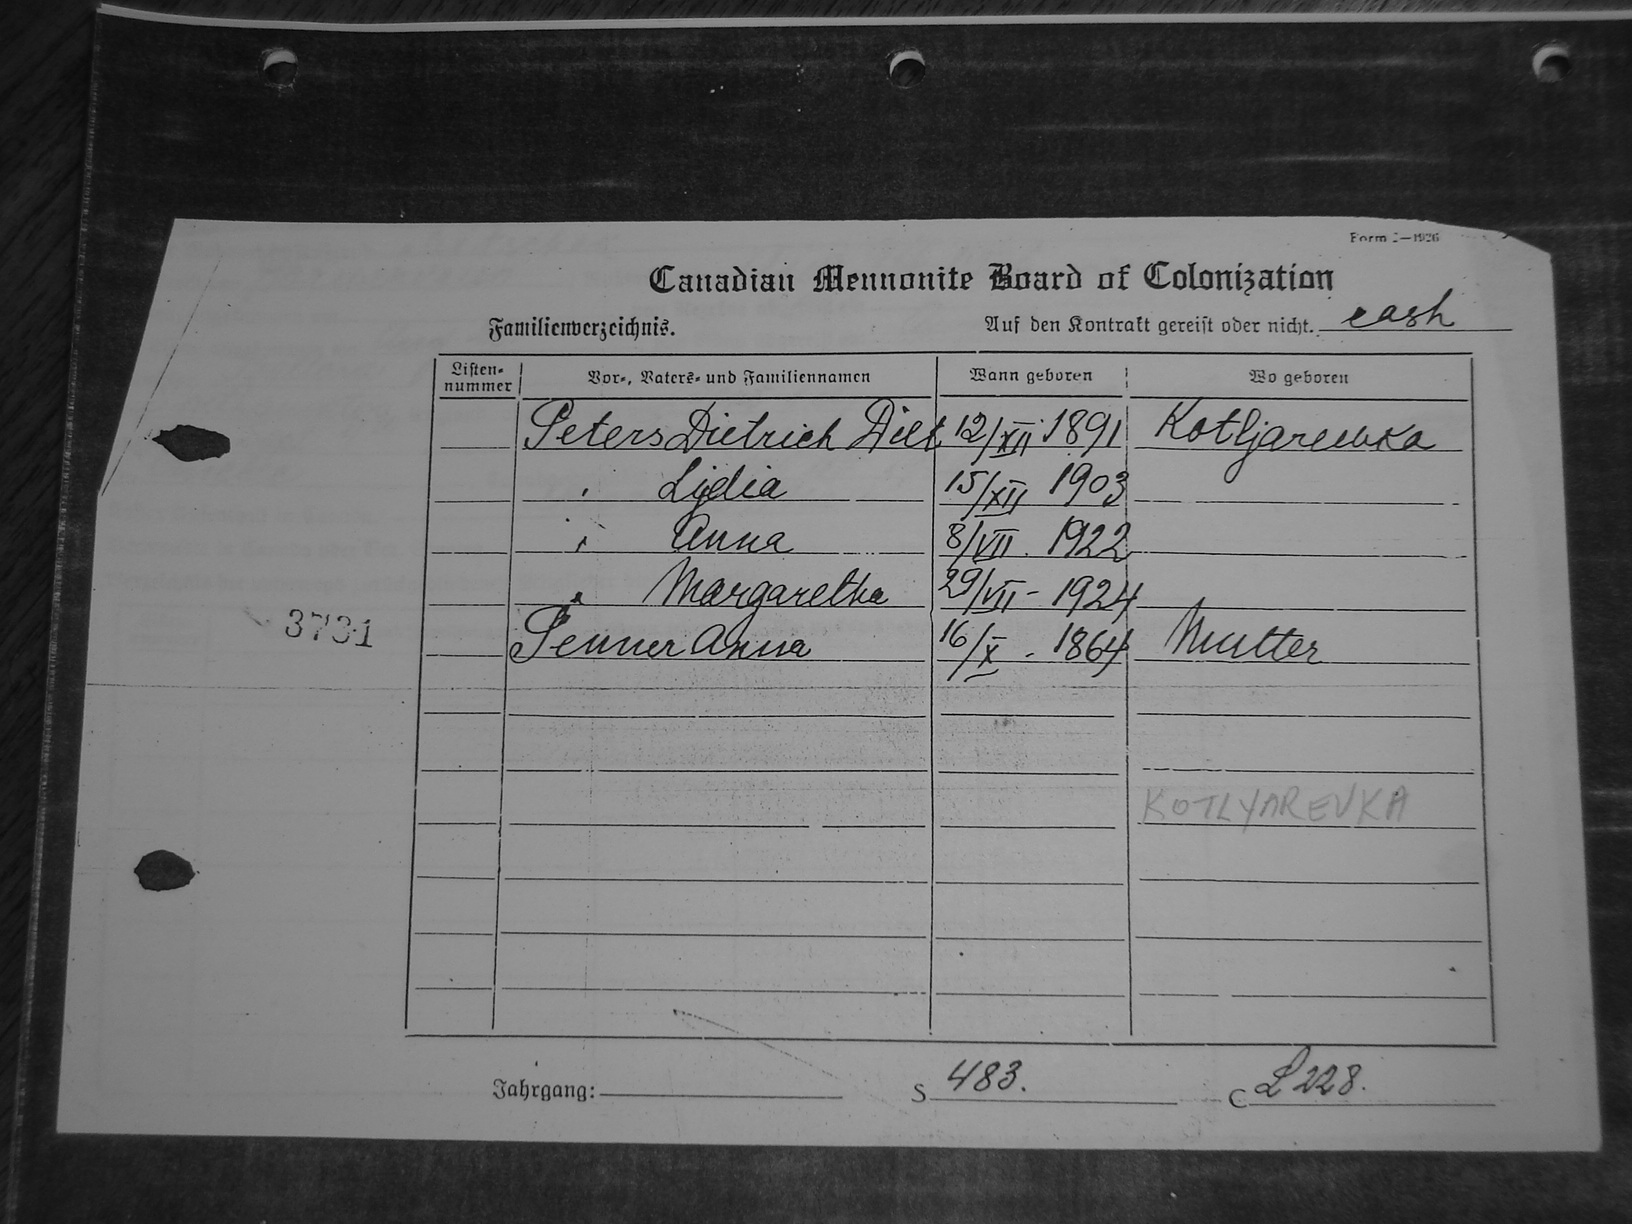 Form 2—1926
Canadian Mennonite Board of Colonization
Familienverzeichnis. Auf den Kontrakt gereist oder nicht. cash
Listen-nummer Vor-, Vaters- und Familiennamen Wann geboren Wo geboren
Peters Dietrich Diet 12/XII 1891 Kotljarewka
" Lydia 15/XII 1903
" Anna 8/VII. 1922
" Margaretha 29/VII - 1924
3731
Penner Anna 16/X - 1864 Mutter
KOTLYAREVKA
Jahrgang: S 483. C L 228.